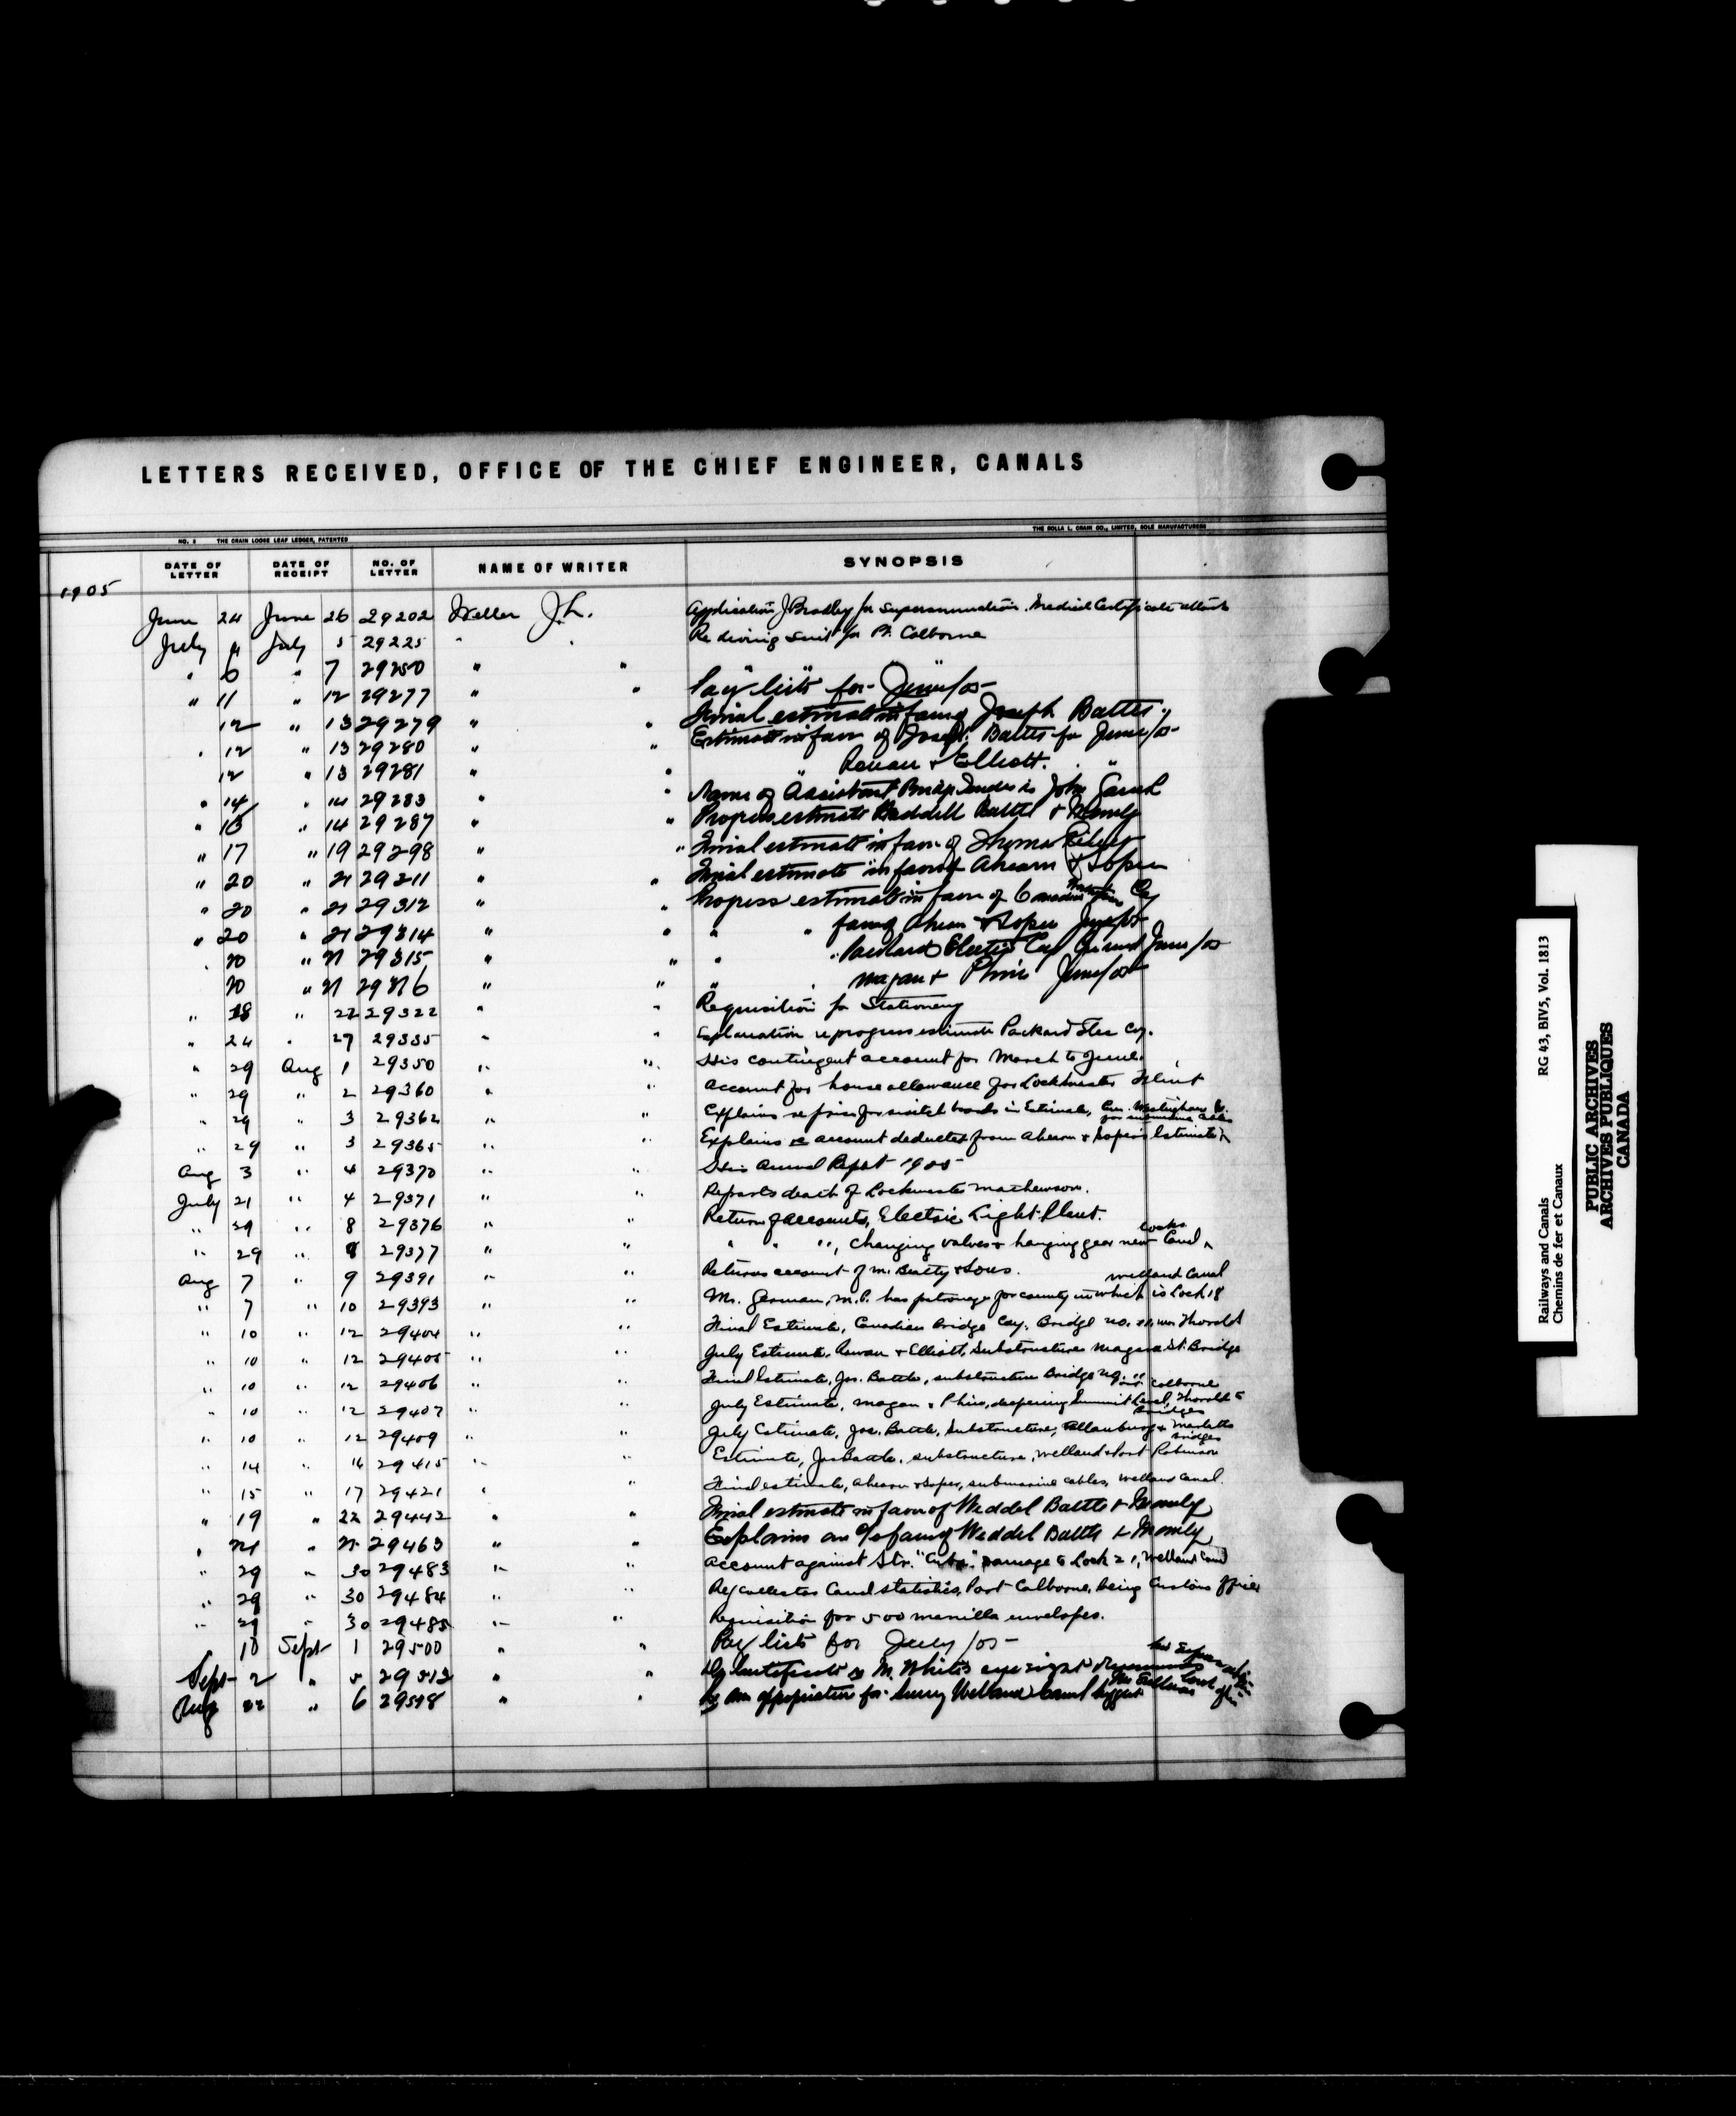 LETTERS RECEIVED, OFFICE OF THE CHIEF ENGINEER, CANALS
NO. 2 THE CRAIN LOOSE LEAF LEDGER, PATENTED THE ROLLA L. CRAIN CO., LIMITED, SOLE MANUFACTURERS
DATE OF LETTER DATE OF RECEIPT NO. OF LETTER NAME OF WRITER SYNOPSIS
1905
June 24 June 26 29202 Weller J.L. Application J Bradley for Superannuation. Medical Certificate attach
July 4 July 5 29225 " " Re diving suit for Pt. Colborne
" 6 " 7 29250 " "
" 11 " 12 29277 " " Pay lists for June/05
12 " 13 29279 " " Final estimate in favor of Joseph Battle
" 12 " 13 29280 " " Estimate in favor of Joseph Battle for June/05
12 " 13 29281 " " " Rowan & Elliott. "
" 14 " 14 29283 " " Name of Assistant Bridge Tender is John
" 13 " 14 29287 " " Progress estimate Weddell Battle & Manly
" 17 " 19 29298 " " Final estimate in favor of Thomas
" 20 " 21 29311 " " Final estimate in favor of Ahearn & Soper
" 20 " 21 29312 " " Progress estimate in favor of Canadian Coy
" 20 " 21 29314 " " " " favor of Ahearn & Soper June/05
" 20 " 21 29315 " " " " Packard Electric Coy June/05
20 " 21 29316 " " " " Magan & Phin June/05
" 18 " 22 29322 " " Requisition for Stationery
" 24 " 27 29335 " " Explanation re progress estimate Packard Elec Coy.
" 29 Aug 1 29350 " " His contingent account for March to June.
" 29 " 2 29360 " " Account for house allowance for Lockmaster Flint
" 29 " 3 29362 " " Explains re prices for switch boards in Estimate, Can. Westinghouse Co.
for submarine cables
" 29 " 3 29365 " " Explains re account deducted from Ahearn & Soper's Estimate
Aug 3 " 4 29370 " " His Annual Report 1905
July 21 " 4 29371 " " Reports death of Lockmaster Mathewson.
" 29 " 8 29376 " " Return of accounts, Electric Light Plant.
locks
" 29 " 8 29377 " " " " ", changing valves & hanging gear new Canal
Aug 7 " 9 29391 " " Returns account of M. Beatty & Sons.
Welland Canal
" 7 " 10 29393 " " Mr. German, M.P. has patronage for county in which is Lock 18
" 10 " 12 29404 " " Final Estimate, Canadian Bridge Coy. Bridge no. Thorold
" 10 " 12 29405 " " July Estimate. Rowan & Elliott, Substructure Niagara St. Bridge
" 10 " 12 29406 " " Final Estimate, Jos. Battle, substructure Bridge no.
Port Colborne
" 10 " 12 29407 " " July Estimate, Magan & Phin, deepening Summit Level, Thorold to
Bridges
" 10 " 12 29409 " " July Estimate, Jos. Battle, Substructure, Allanburg & Marlatts
Bridges
" 14 " 16 29415 " " Estimate, Jos Battle, substructure, Welland & Port Robinson
" 15 " 17 29421 " " Final estimate, Ahearn & Soper, submarine cables, Welland Canal.
" 19 " 22 29442 " " Final estimate in favor of Weddel Battle & Manly
" 21 " 29463 " " Explains an a/c favor of Weddel Battle & Manly
" 29 " 30 29483 " " Account against Str. damage to Lock 21, Welland Canal
" 29 " 30 29484 " " Re collector Canal Statistics, Port Colborne, being Customs officer
" 29 " 30 29485 " " Requisition for 500 manilla envelopes.
10 Sept 1 29500 " " Pay lists for July/05
Sept 2 " 5 29513 " " Certificate re M. White's eye sight
Aug 22 " 6 29518 " " Re an appropriation for Survey Welland Canal
Railways and Canals RG 43, BIV5, Vol. 1813
Chemins de fer et Canaux
PUBLIC ARCHIVES
ARCHIVES PUBLIQUES
CANADA